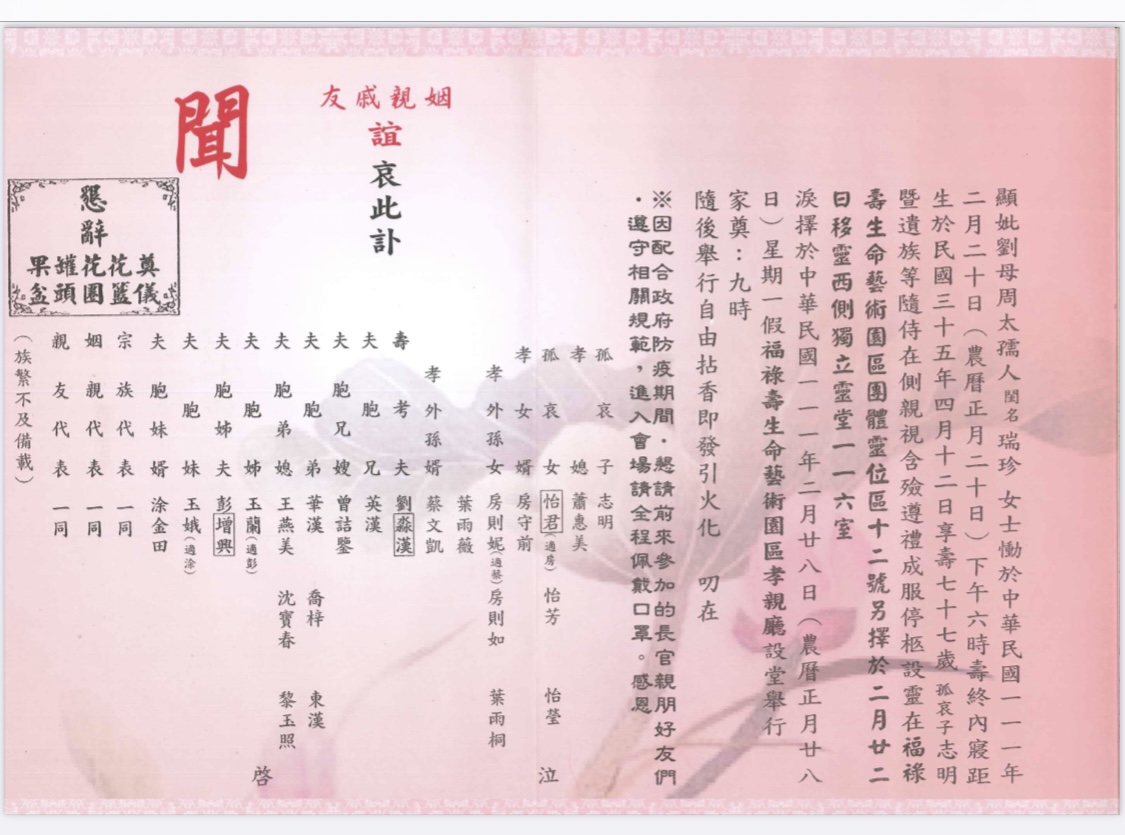 顯妣劉母周太孺人閨名瑞珍 女士慟於中華民國一一一年
二月二十日（農曆正月二十日）下午六時壽終內寢距
生於民國三十五年四月十二日享壽七十七歲 孤哀子志明
暨遺族等隨侍在側親視含殮遵禮成服停柩設靈在福祿
壽生命藝術園區團體靈位區十二號另擇於二月廿二
日移靈西側獨立靈堂一一六室
淚擇於中華民國一一一年二月廿八日（農曆正月廿八
日）星期一假福祿壽生命藝術園區孝親廳設堂舉行
家奠：九時
隨後舉行自由拈香即發引火化 叨在
※因配合政府防疫期間，懇請前來參加的長官親朋好友們
，遵守相關規範，進入會場請全程佩戴口罩。感恩
姻親戚友
誼哀此訃
聞
孤哀子 志明
孝媳 蕭惠美
孤哀女 怡君(適房) 怡芳 怡瑩 泣
孝女婿 房守前
孝外孫女 房則妮(適蔡) 房則如 葉雨桐
葉雨薇
孝外孫婿 蔡文凱
壽考夫 劉淼漢
夫胞兄 英漢
夫胞兄嫂 曾詰鑒
夫胞弟 華漢 喬梓 東漢
夫胞弟媳 王燕美 沈寶春 黎玉照
夫胞姊 玉蘭(適彭) 啓
夫胞姊夫 彭增興
夫胞妹 玉娥(適涂)
夫胞妹婿 涂金田
宗族代表 一同
姻親代表 一同
親友代表 一同
（族繁不及備載）
懇辭
奠儀
花籃
花圈
罐頭
果盆